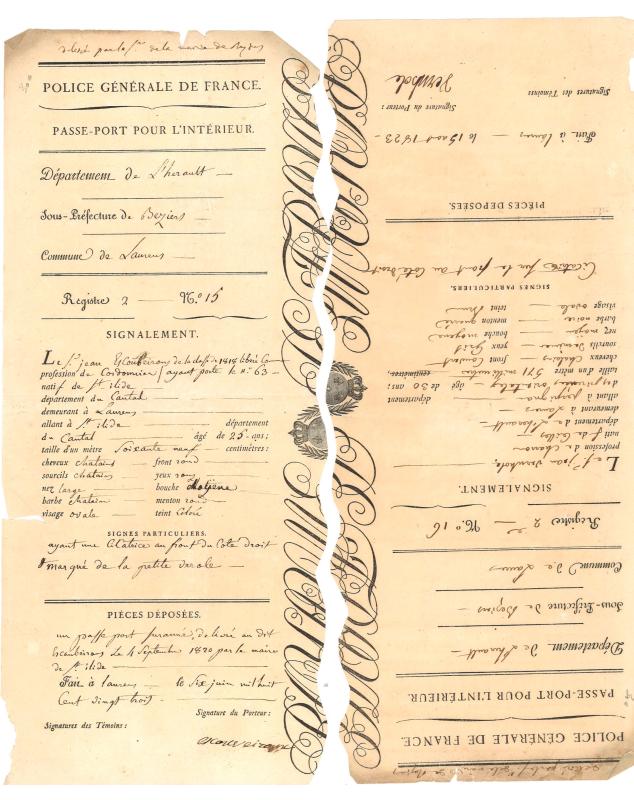 délivré par le Sr. de la mairie de Beziers
POLICE GÉNÉRALE DE FRANCE.
PASSE-PORT POUR L'INTÉRIEUR.
Département de L'herault
Sous-Préfecture de Beziers
Commune de Laurens
Registre 2 N.o 15
SIGNALEMENT.
LE Sr. jean Escoubeirous de la classe de 1818 libéré
profession de Cordonnier ayant porté le n.o 63
natif de St. ilide
département du Cantal
demeurant à Laurens
allant à St. ilide département
du Cantal âgé de 25 ans;
taille d'un mètre soixante neuf centimètres:
cheveux chatains front rond
sourcils chatains yeux roux
nez large bouche moyene
barbe chatain menton rond
visage ovale teint coloré
SIGNES PARTICULIERS.
ayant une cicatrice au front du coté droit
marqué de la petite verole
PIÈCES DÉPOSÉES.
un passe port suranné, delivré au dit
Escoubeirous le 4 Septembre 1820 par le maire
de St. ilide
Fait à laurens le six juin mil huit
Cent vingt trois
Signature du Porteur:
Signatures des Témoins:
POLICE GÉNÉRALE DE FRANCE.
PASSE-PORT POUR L'INTÉRIEUR.
Département de L'herault
Sous-Préfecture de Beziers
Commune de Laurens
Registre 2 N.o 16
SIGNALEMENT.
LE Sr. jean
profession de
natif de Gilles
département de L'herault
demeurant à Laurens
allant à perpignan
département
des pirennées orientales âgé de 30 ans;
taille d'un mètre 571 millimetres centimètres;
cheveux chatains front couvert
sourcils yeux gris
nez moyen bouche moyene
barbe noire menton
visage ovale teint brun
SIGNES PARTICULIERS.
Cicatrice sur le front au coté droit
PIÈCES DÉPOSÉES.
Fait à laurens le 15 aout 1823
Signature du Porteur:
Signatures des Témoins